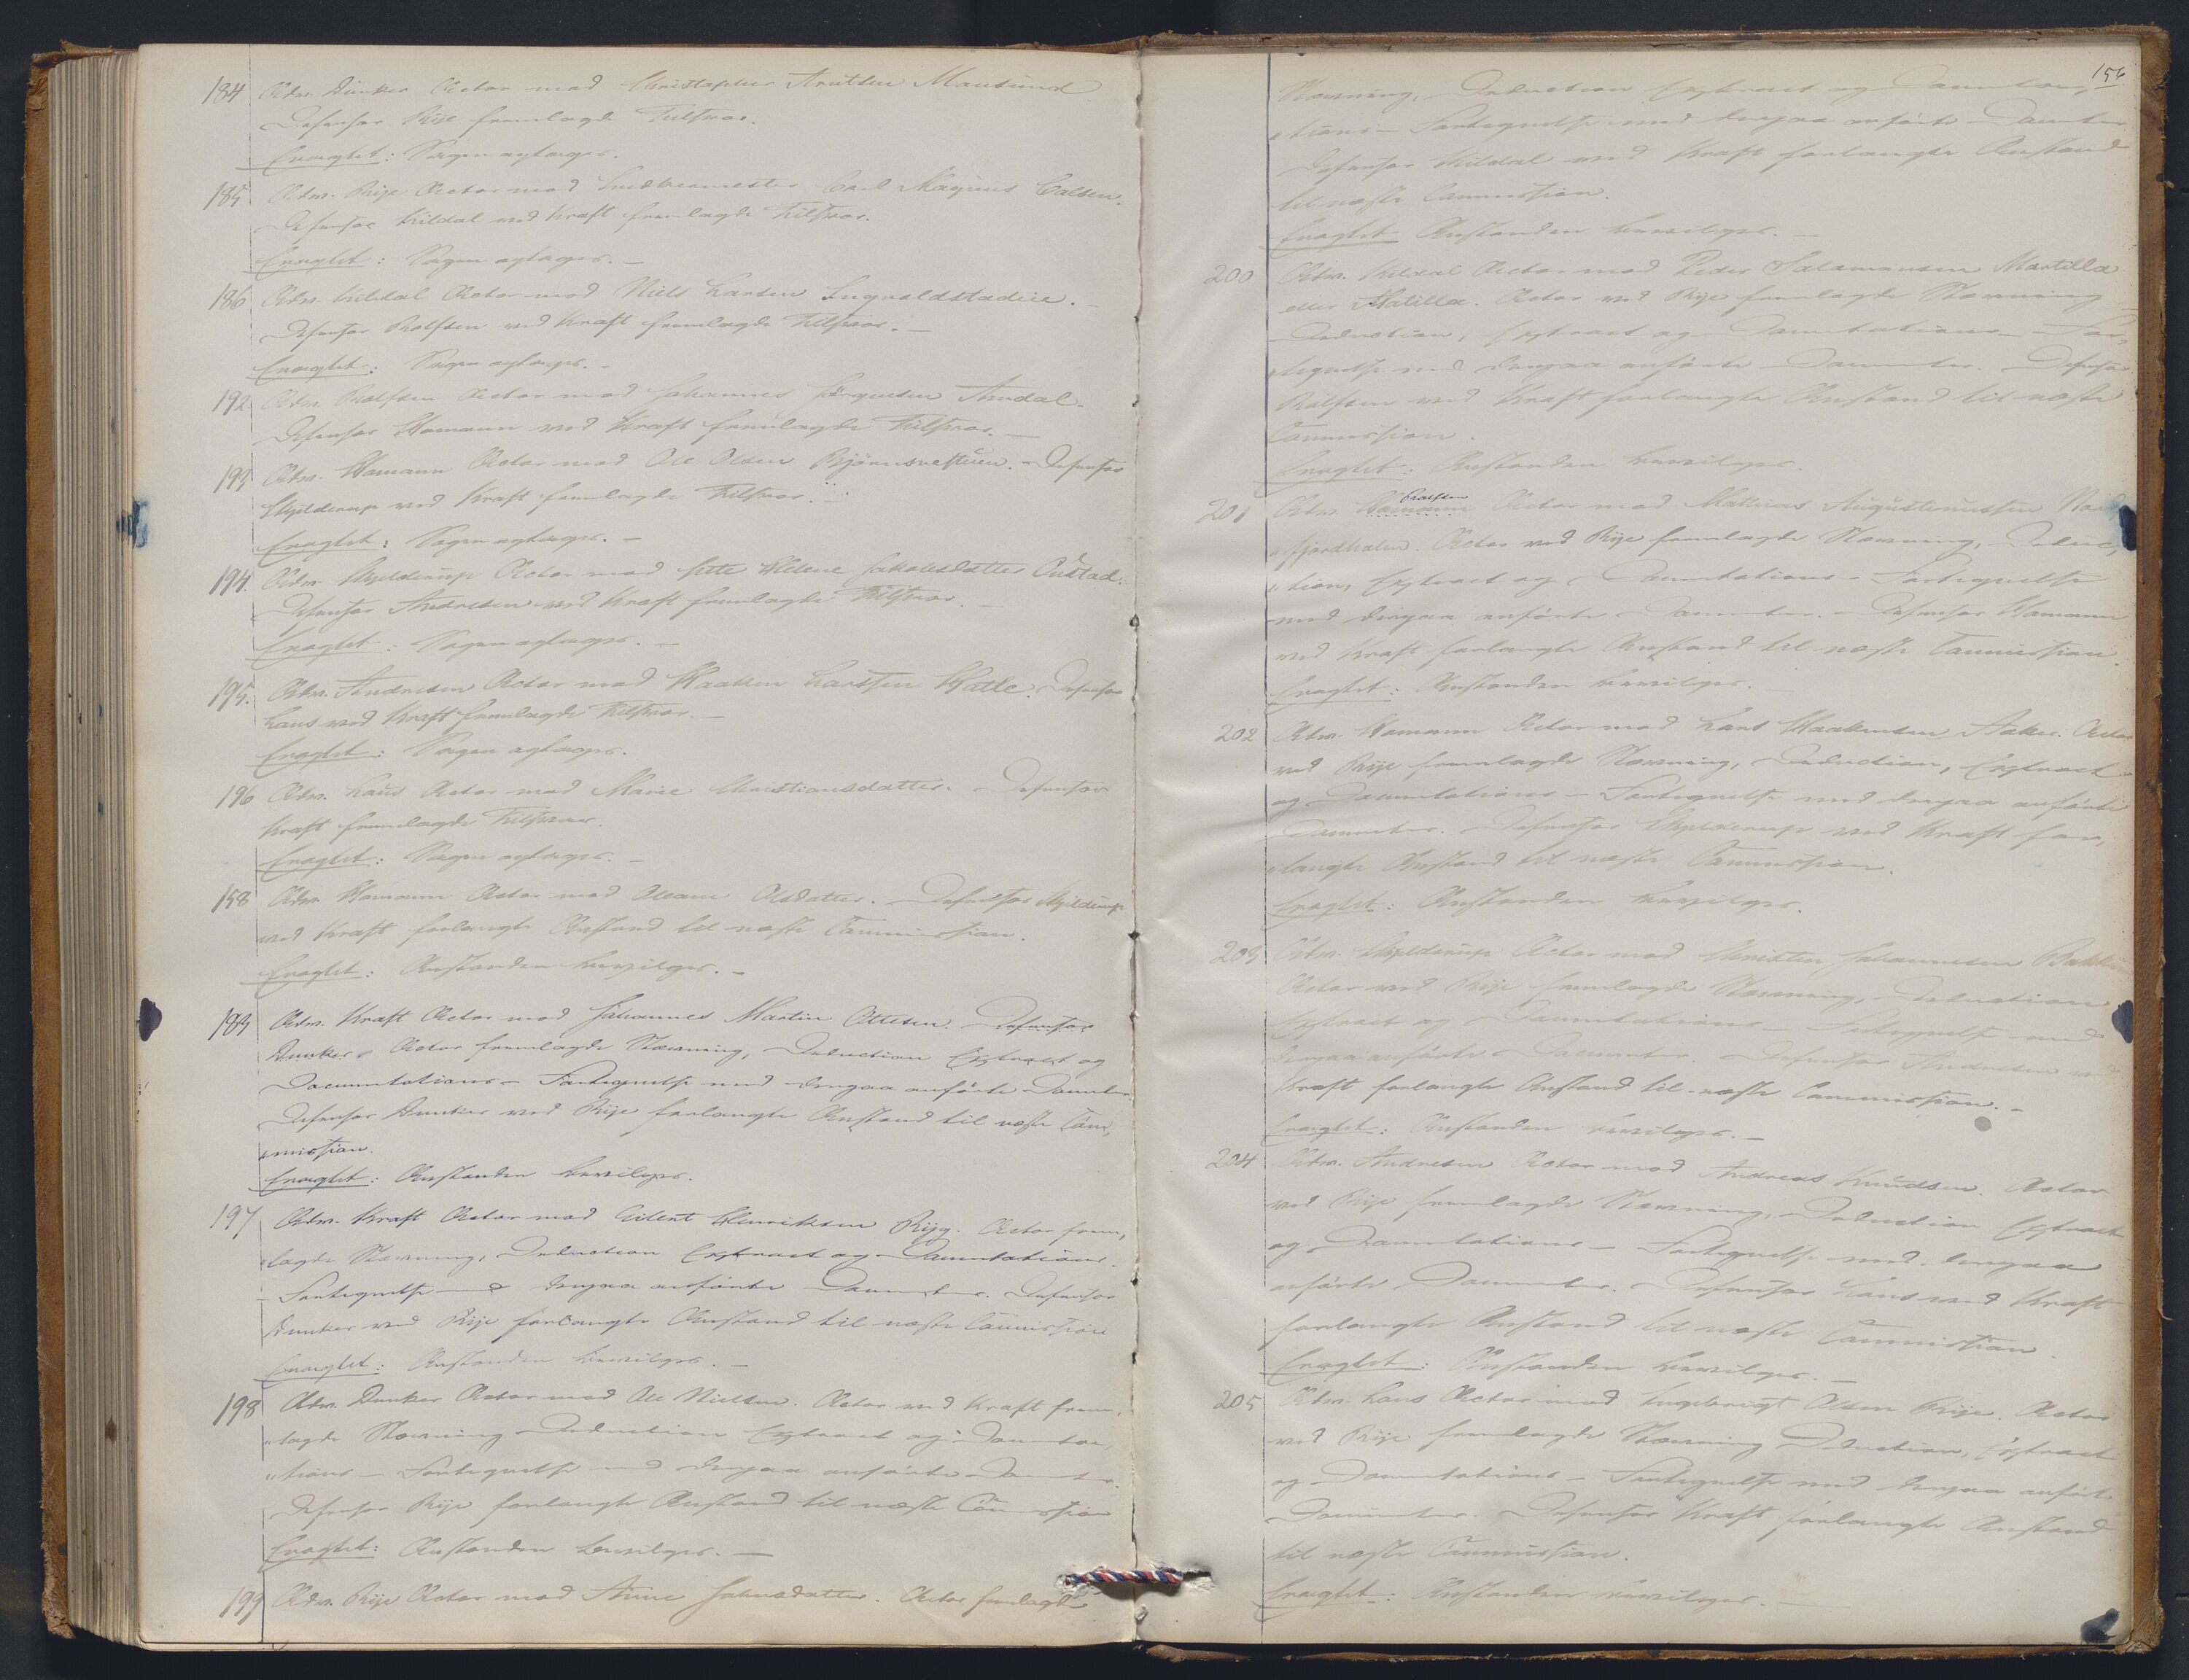 184 Adv. Dunker Actor mod Christopher Arntsen Mausund
Defensor Rije fremlagde Tilsvar.
Eragtet: Sagen optages.
185 Adv. Rije Actor mod Carl Magnus Calsen.
Defensor Kildal ved Kraft fremlagde Tilsvar.
Eragtet: Sagen optages. —
186 Adv. Kildal Actor mod Niels Larsen Ingvaldstadeie. —
Defensor Rolfsen ved Kraft fremlagde Tilsvar. —
Eragtet: Sagen optages. —
192 Adv. Rolfsen Actor mod Johannes Jörgensen Amdal.
Defensor Homann ved Kraft fremlagde Tilsvar. —
193 Adv. Homann Actor mod Ole Olsen Björnsvestuen. Defensor
Skjelderup ved Kraft fremlagde Tilsvar. —
Eragtet: Sagen optages. —
194. Adv. Skjelderup Actor mod Helene Jakobsdatter Oustad.
Defensor Andresen ved Kraft fremlagde Tilsvar. —
Eragtet: Sagen optages. —
195. Adv. Andresen Actor mod Haaken Larssen Hatle. Defensor
Laus ved Kraft fremlagde Tilsvar. —
Eragtet: Sagen optages.
196 Adv. Laus Actor mod Marie Christiansdatter. Defensor
Kraft fremlagde Tilsvar.
Eragtet: Sagen optages. —
158 Adv. Homann Actor mod Oleane Olsdatter. Defensor Skjelderup
ved Kraft forlangte Anstand til næste Commission.
Eragtet: Anstanden bevilges. —
189 Adv. Kraft Actor mod Johannes Martin Ottesen. Defensor
Dunker. Actor fremlagde Stævning, Deduction Extract og
Documentations-Fortegnelse med derpaa anførte Documenter
Defensor Dunker ved Rije forlangte Anstand til næste Com,
„mission.
Eragtet: Anstanden bevilges.
197 Adv. Kraft Actor mod Eilert Henriksen Rijg. Actor frem,
„lagde Stævning, Deduction Extract og Documentations-
Fortegnelse med derpaa anførte Documenter. Defensor
Dunker ved Rije forlangte Anstand til næste Commission
Eragtet: Anstanden bevilges. —
198 Adv. Dunker Actor mod Ole Nielsen. Actor ved Kraft frem,
„lagde Stævning Deduction Extract og Documenta,
„tions-Fortegnelse med derpaa anførte Documenter.
Defensor Rije forlangte Anstand til næste Commission
Eragtet: Anstanden bevilges. —
199 Adv. Rije Actor mod Anne Johnsdatter. Actor fremlagde
156
Stævning, Deduction Extract og Documenta,
„tions-Fortegnelse med derpaa anførte Documenter
Defensor Kildal ved Kraft forlangte Anstand
til næste Commission.
Eragtet Anstanden bevilges. —
200 Adv. Kildal Actor mod Peder Salamonsen Martilla
eller Matilla. Actor ved Rije fremlagde Stævning
Deduction, Extract og Documentations-For,
„tegnelse med derpaa anførte Documenter. Defensor
Rolfsen ved Kraft forlangte Anstand til næste
Commission.
Eragtet: Anstanden bevilges.
201 Adv. Homann Rolfsen Actor mod Mathias Augustinussen Nord
„fjordhalen. Actor ved Rije fremlagde Stævning, Deduc,
„tion, Extract og Documentations-Fortegnelse
med derpaa anførte Documenter. Defensor Homann
ved Kraft forlangte Anstand til næste Commission.
Eragtet: Anstanden bevilges.
202 Adv. Homann Actor mod Lars Haakensen Aaker. Actor
ved Rije fremlagde Stævning, Deduction, Extract
og Documentations-Fortegnelse med derpaa anførte
Documenter. Defensor Skjelderup ved Kraft for,
„langte Anstand til næste Commission.
Eragtet: Anstanden bevilges.
203 Adv. Skjelderup Actor mod Christen Johannesen Bakken
Actor ved Rije fremlagde Stævning, Deduction
Extract og Documentations-Fortegnelse med
derpaa anførte Documenter. Defensor Andresen ved
Kraft forlangte Anstand til næste Commission. —
Eragtet: Anstanden bevilges. —
204 Adv. Andresen Actor mod Andreas Knudsen. Actor
ved Rije fremlagde Stævning, Deduction Extract
og Documentations-Fortegnelse med derpaa
anførte Documenter. Defensor Laus ved Kraft
forlangte Anstand til næste Commission.
Eragtet: Anstanden bevilges. —
205 Adv. Laus Actor mod Ingebrigt Olsen Rije. Actor
ved Rije fremlagde Stævning Deduction, Extract
og Documentations-Fortegnelse med derpaa anførte
Documenter. Defensor Kraft forlangte Anstand
til næste Commission.
Eragtet: Anstanden bevilges. —